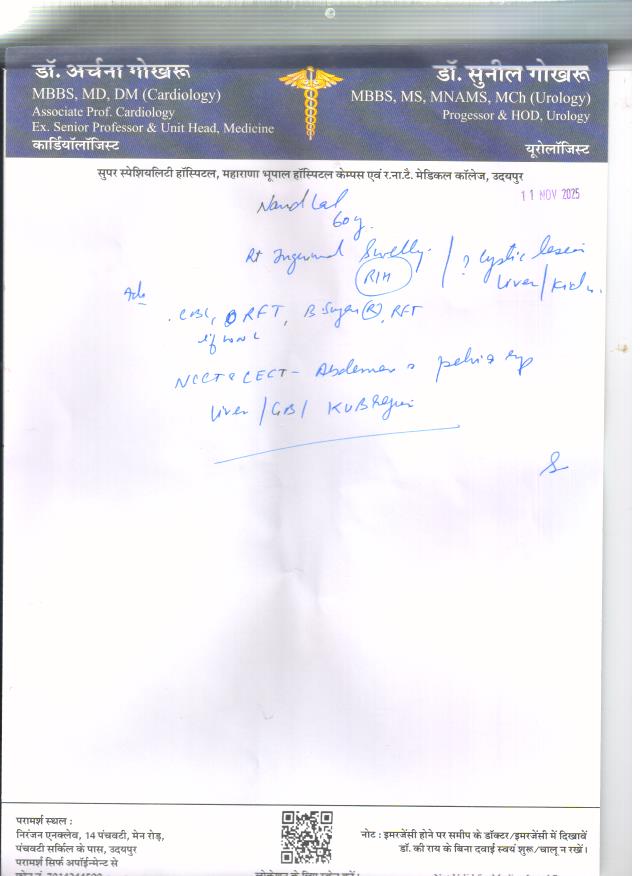 डॉ. अर्चना गोखरू
MBBS, MD, DM (Cardiology)
Associate Prof. Cardiology
Ex. Senior Professor & Unit Head, Medicine
कार्डियॉलॉजिस्ट
डॉ. सुनील गोखरू
MBBS, MS, MNAMS, MCh (Urology)
Progessor & HOD, Urology
यूरोलॉजिस्ट
सुपर स्पेशियलिटी हॉस्पिटल, महाराणा भूपाल हॉस्पिटल केम्पस एवं र.ना.टै. मेडिकल कॉलेज, उदयपुर
11 NOV 2025
Nand Lal
60 y.
Rt Inguinal Swelling / ? Cystic lesion
RIH Liver /
Adv
CBC, RFT, B Sugar (R), RFT
NCCT & CECT - Abdomen & pelvis
Liver / GB / KUB Region
परामर्श स्थल :
निरंजन एनक्लेव, 14 पंचवटी, मेन रोड़,
पंचवटी सर्किल के पास, उदयपुर
परामर्श सिर्फ अपॉईन्मेन्ट से
नोट : इमरजेंसी होने पर समीप के डॉक्टर/इमरजेंसी में दिखावें
डॉ. की राय के बिना दवाई स्वयं शुरू/चालू न रखें।